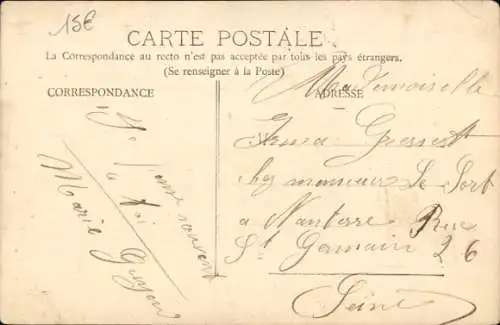 15€
CARTE POSTALE
La Correspondance au recto n'est pas acceptée par tous les pays étrangers.
(Se renseigner à la Poste)
CORRESPONDANCE
ADRESSE
Mademoiselle
chez monsieur Le Sort
a Nanterre Rue
St Germain 26
Seine
souvent
Marie